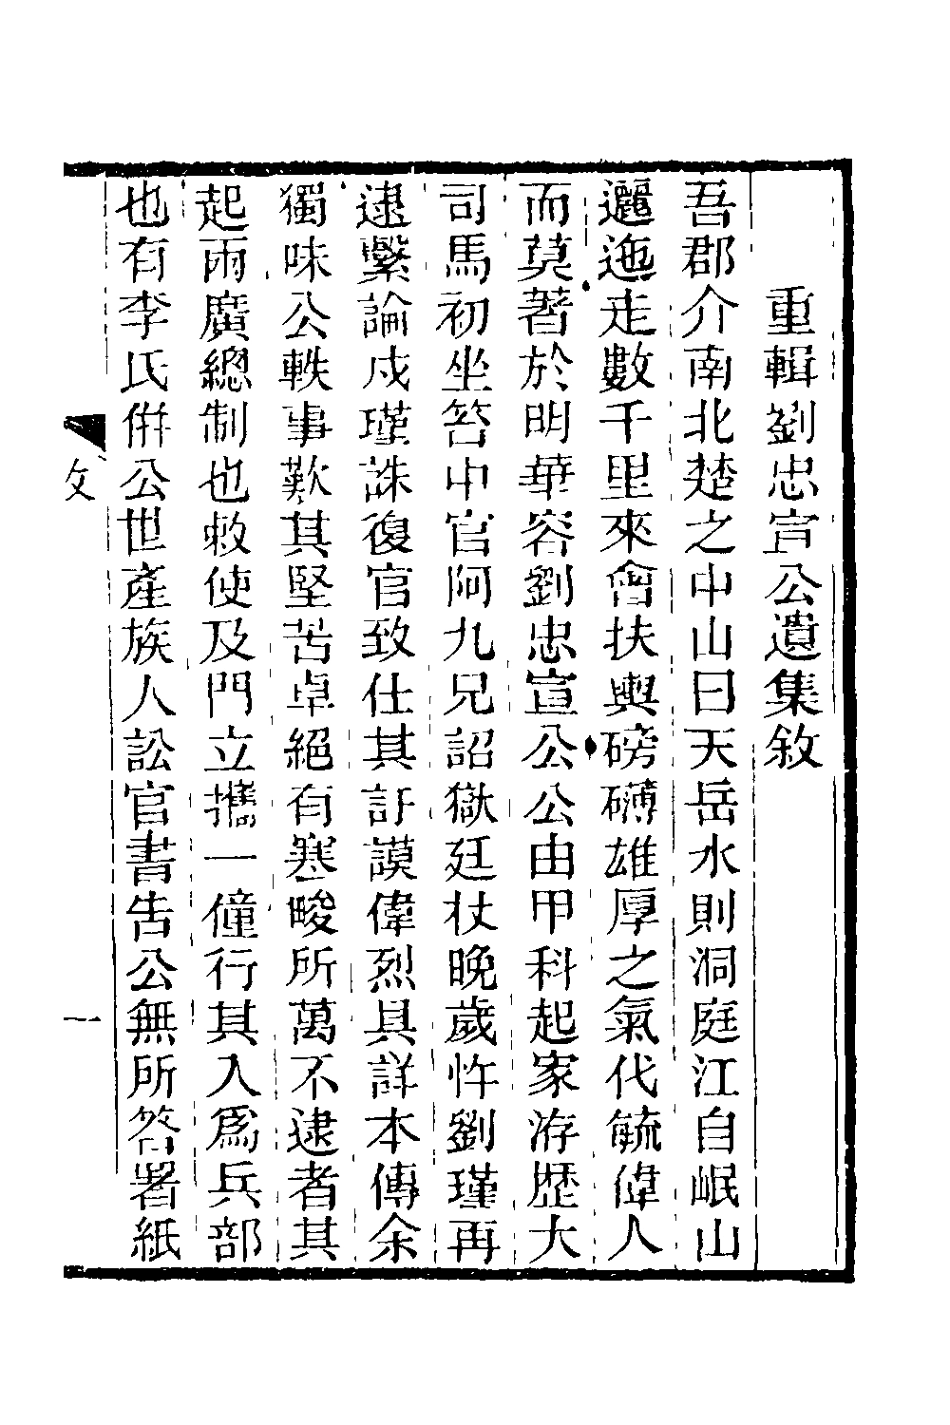 重輯劉忠宣公遺集敘
吾郡介南北楚之中山曰天岳水則洞庭江自岷山
邐迤走數千里來會扶輿磅礴雄厚之氣代毓偉人
而莫著於明華容劉忠宣公公由甲科起家洊歷大
司馬初坐笞中官阿九兄詔獄廷杖晚歲忤劉瑾再
逮繫論戍瑾誅復官致仕其訏謨偉烈具詳本傳余
獨味公軼事歎其堅苦卓絕有寒畯所萬不逮者其
起兩廣總制也敕使及門立攜一僮行其入爲兵部
也有李氏併公世產族人訟官書告公無所答署紙
攵
一